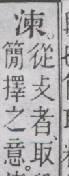 湅。從攴者、取
簡擇之意。